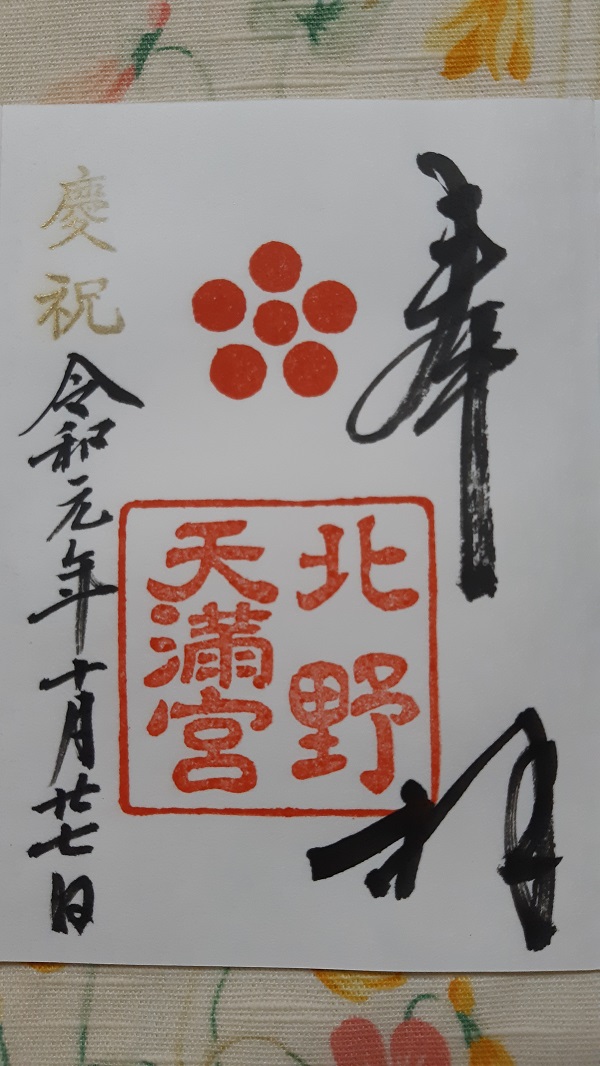 奉拝
北野
天満宮
慶祝
令和元年十月廿七日